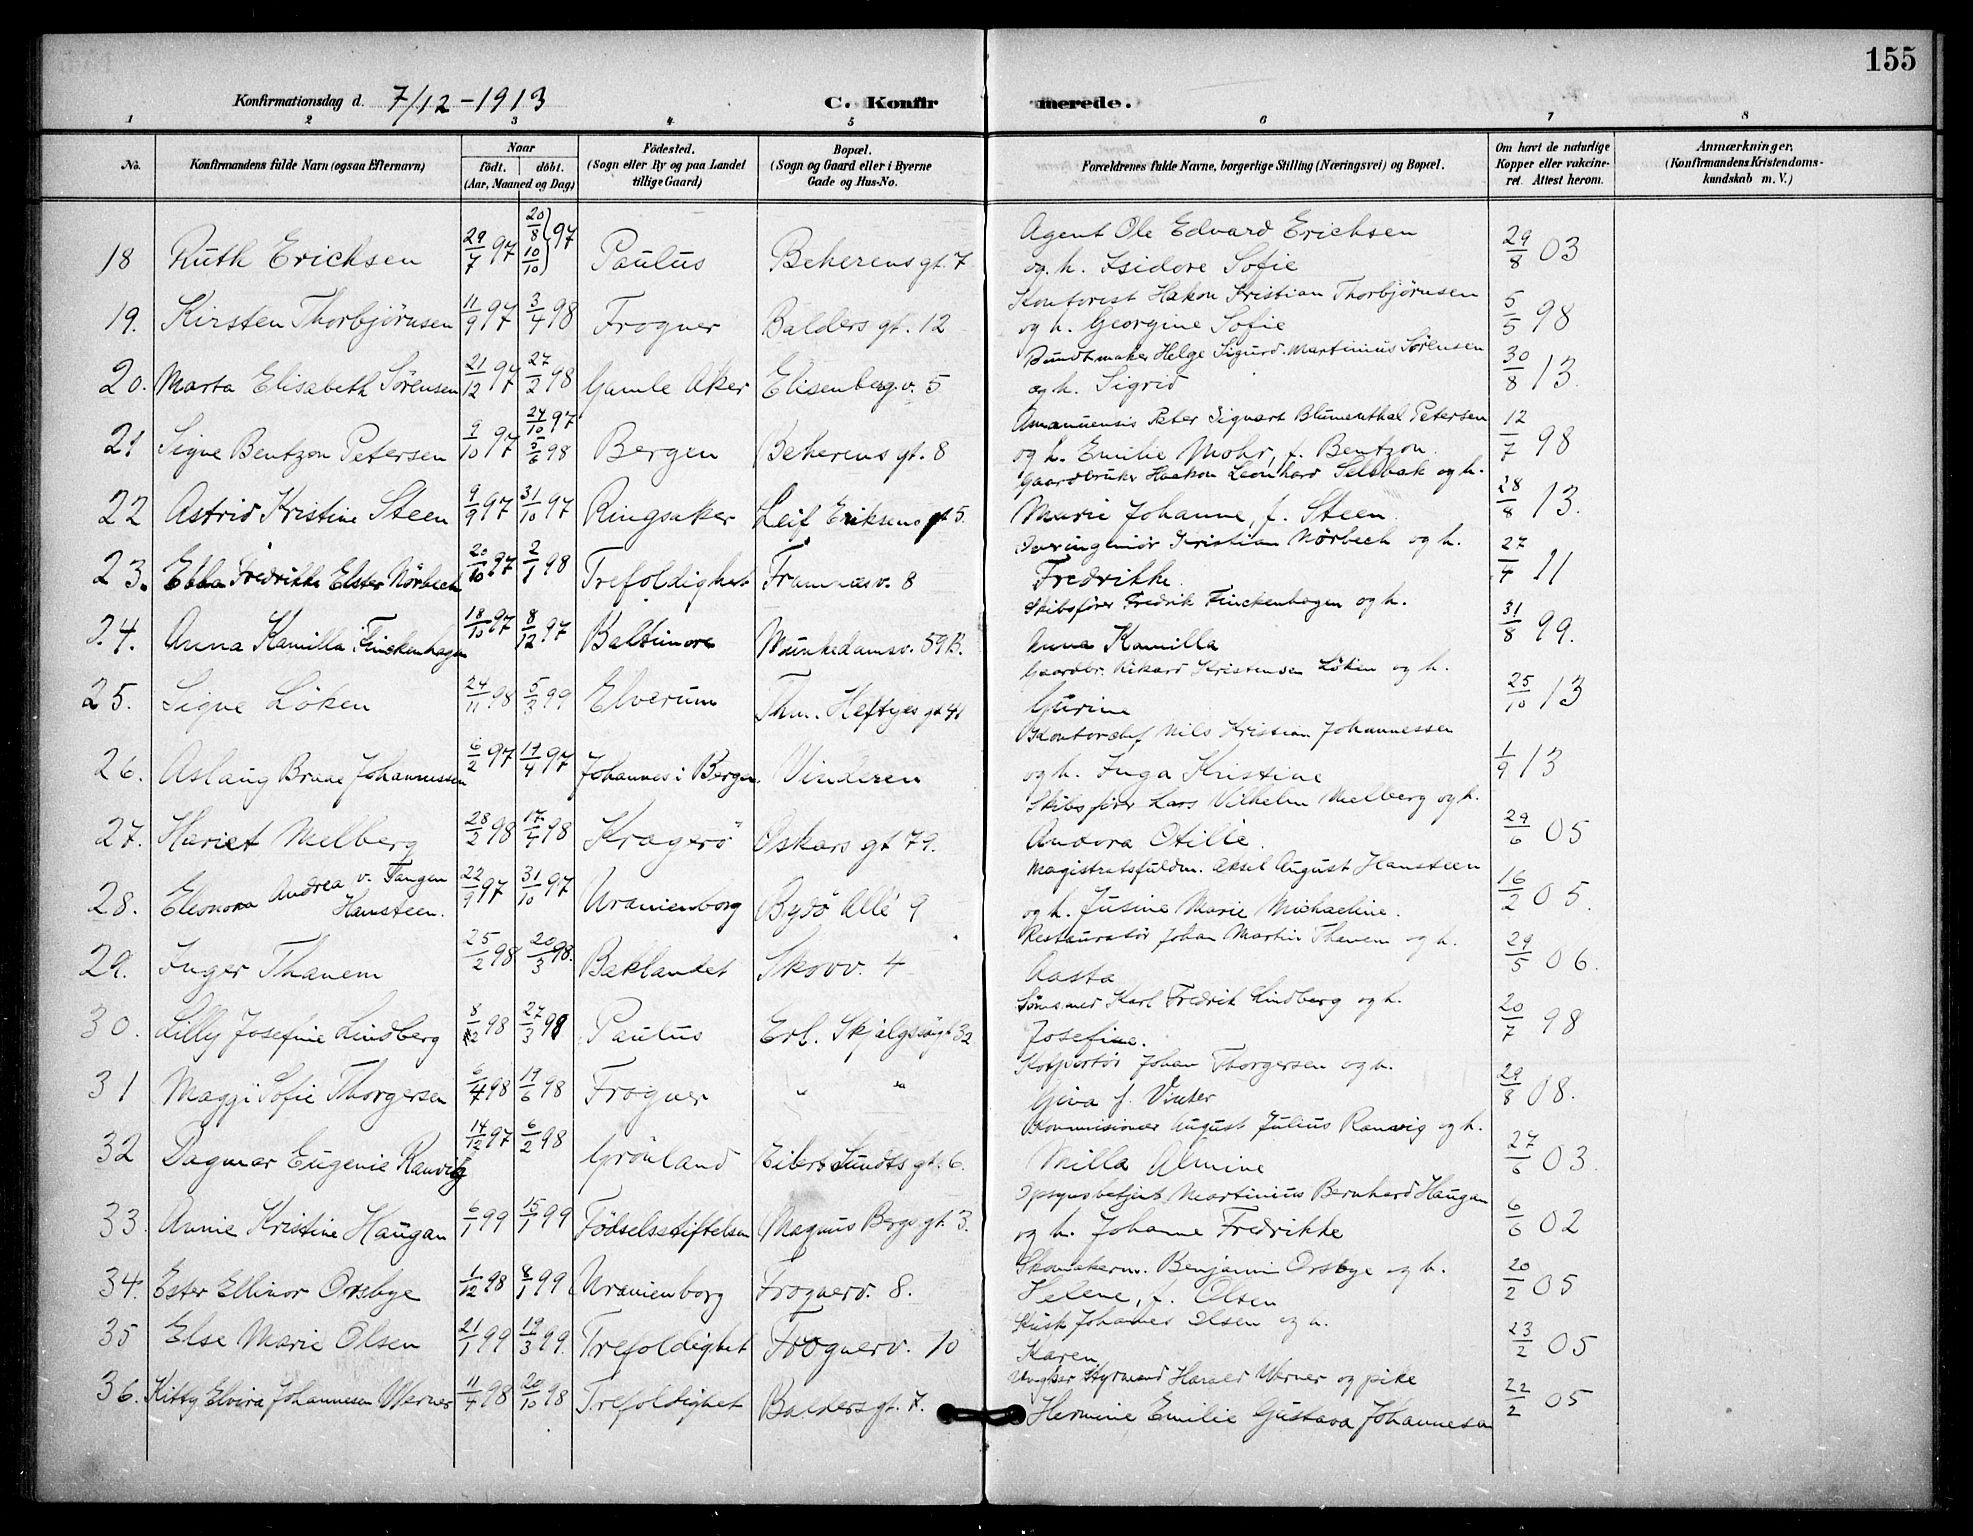 155
Konfirmationsdag d. 7/12 - 1913 C. Konfir merede.
1 2 3 4 5 6 7 8
No. Konfirmandens fulde Navn (ogsaa Efternavn) Naar födt. döbt. (Aar, Maaned og Dag) Födested. (Sogn eller By og paa Landet tillige Gaard) Bopæl. (Sogn og Gaard eller i Byerne Gade og Hus-No. Forældrenes fulde Navne, borgerlige Stilling (Næringsvei) og Bopæl. Om havt de naturlige Kopper eller vakcineret. Attest herom. Anmærkninger. (Konfirmandens Kristendomskundskab m. V.)
18 Ruth Erichsen 29/7 97 20/8 10/10 97 Paulus Beherens gt. 7 Agent Ole Edvard Erichsen
og h. Isidore Sofie 29/8 03
19. Kirsten Thorbjörnsen 11/9 97 3/4 98 Frogner Balders gt. 12 Kontorist Hakon Kristian Thorbjörnsen
og h. Georgine Sofie 5/5 98
20. Marta Elisabeth Sörensen 21/12 97 27/2 98 Gamle Aker Elisenberg.v. 5 Bundtmaker Helge Sigurd Martinius Sörensen
og h. Sigrid 30/8 13.
21 Signe Bentzon Petersen 9/10 97 24/10 97 5/6 98 Bergen Beherens gt. 8 Amanuensis Peter Sigvart Blumenthal Petersen
og h. Emilie Mohr, f. Bentzon. 12/7 98
22 Astrid Kristine Steen 9/9 97 31/10 97 Ringsaker Leif Eriksens gt 5. Gaardbruker Haakon Leonhard Selsbak og h.
Marie Johanne, f. Steen 28/8 13.
23. Ebba Fredrikke Elster Nörbech 20/10 97 2/1 98 Trefoldighet Framnæsv. 8 Overingeniör Kristian Nörbech og h.
Fredrikke. 27/4 11
24. Anna Kamilla Finckenhagen 18/10 97 8/12 97 Baltimore Munkedamsv. 59 B. Skibsförer Fredrik Finckenhagen og h.
Anna Kamilla 31/8 99.
25. Signe Löken 24/11 98 5/3 99 Elverum Thm. Heftyes gt 41 Gaardbr. Rikard Kristensen Löken og h.
Gurine 25/10 13
26. Aslaug Brune Johannessen 6/2 97 19/4 97 Johannes i Bergen. Vinderen Kontorchef Nils Kristian Johannessen
og h. Inga Kristine 1/9 13
27. Hariet Melberg 28/2 98 17/4 98 Kragerö Oskars gt 79. Skibsförer Lars Vilhelm Melberg og h.
Andora Otilie. 29/6 05
28. Eleonora Andrea v. Tangen Hansteen. 22/9 97 31/10 97 Uranienborg Bygdö Allé 9 Magistratsfuldm. Aksel August Hansteen
og h. Jusine Marie Michaeline. 16/2 05.
29. Inger Thanem 25/2 98 20/3 98. Baklandet Skovv. 4 Restauratör Johan Martin Thanem og h.
Aasta 29/5 06.
30. Lilly Josefine Lindberg 8/2 98 27/3 98 Paulus Erl. Skjalgsöngt 32 Sömand Karl Fredrik Lindberg og h.
Josefine. 20/7 98
31 Maggi Sofie Thorgersen 6/4 98 19/6 98 Frogner " " Kolportör Johan Thorgersen og h.
Giva f. Vinter 29/8 08.
32 Dagmar Eugenie Ranvig 14/12 97 6/2 98 Grönland Eilert Sundts gt. 6. Kommisionær August Julius Ranvig og h.
Milla Almine 27/6 03.
33. Annie Kristine Haugan 6/1 99 15/1 99 Födselsstiftelsen Magnus Bergs gt. 3. Opsynsbetjent Martinius Bernhard Haugan
og h. Johanne Fredrikke 6/6 02
34. Ester Ellinor Orsbye 1/12 98 8/1 99 Uranienborg Frognerv. 8. Skomakerm. Benjamin Orsbye og h.
Helene, f. Olsen 20/2 05
35 Else Marie Olsen 21/1 99 19/3 99. Trefoldighet Frognerv. 10 Kusk Johannes Olsen og h.
Karen. 23/2 05
36. Kitty Elvira Johannesen Werner 11/4 98 20/10 98 Trefoldighet Balders gt. 7. Ungkar Styrmand Harald Werner og pike
Hermine Emilie Gustava Johannesen 22/2 05